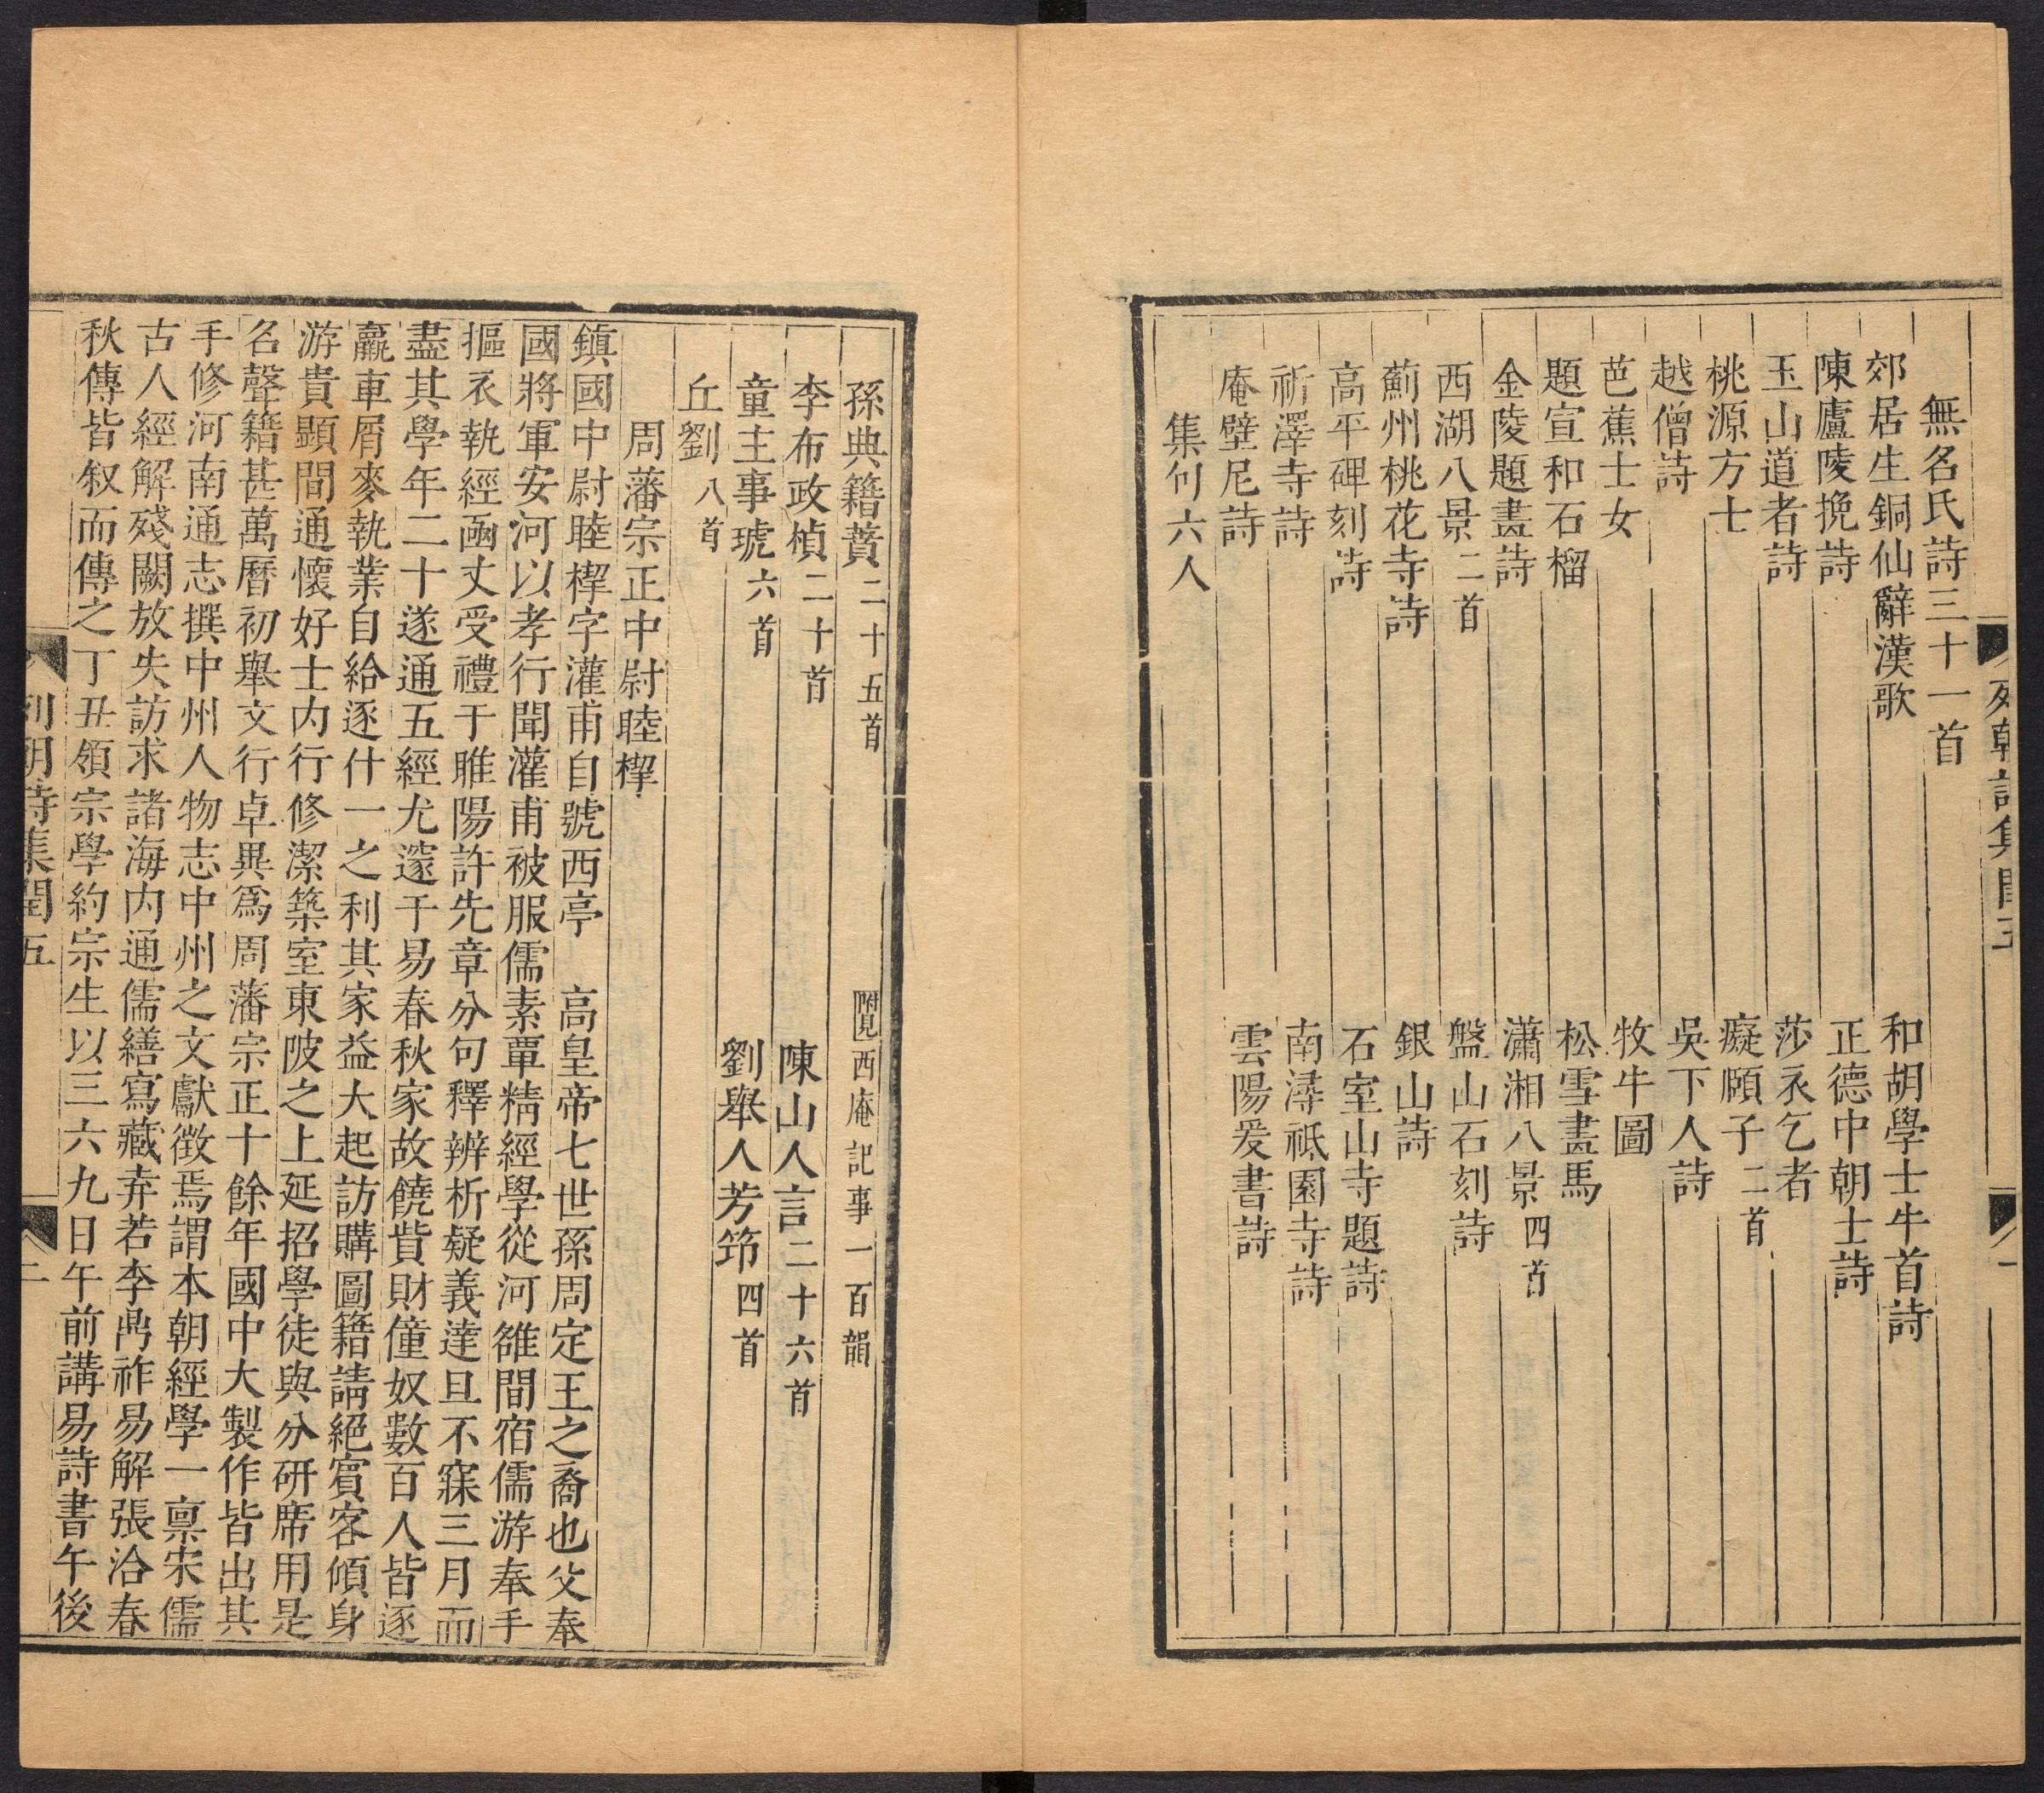 列朝詩集閏五
一
無名氏詩三十一首
郊居生銅仙辭漢歌　和胡學士牛首詩
陳廬陵挽詩　正德中朝士詩
玉山道者詩　莎衣乞者
桃源方士　癡頥子二首
越僧詩　吳下人詩
芭蕉士女　牧牛圖
題宣和石榴　松雪畫馬
金陵題畫詩　瀟湘八景四首
西湖八景二首　盤山石刻詩
薊州桃花寺詩　銀山詩
高平碑刻詩　石室山寺題詩
祈澤寺詩　南潯祗園寺詩
庵壁尼詩　雲陽爰書詩
集句六人
孫典籍蕡二十五首　附見西庵記事一百韻
李布政楨二十首　陳山人言二十六首
童主事琥六首　劉舉人芳節四首
丘劉八首
周藩宗正中尉睦㮮
鎮國中尉睦㮮字灌甫自號西亭　高皇帝七世孫周定王之裔也父奉
國將軍安河以孝行聞灌甫被服儒素覃精經學從河雒間宿儒游奉手
摳衣執經函丈受禮于睢陽許先章分句釋辨析疑義達旦不寐三月而
盡其學年二十遂通五經尤邃于易春秋家故饒貲財僮奴數百人皆逐
羸車屑麥執業自給逐什一之利其家益大起訪購圖籍請絕賓客傾身
游貴顯間通懷好士內行修潔築室東陂之上延招學徒與分研席用是
名聲籍甚萬曆初舉文行卓異爲周藩宗正十餘年國中大製作皆出其
手修河南通志撰中州人物志中州之文獻徵焉謂本朝經學一稟宋儒
古人經解殘闕放失訪求諸海內通儒繕寫藏弆若李鼎祚易解張洽春
秋傳皆叙而傳之丁丑領宗學約宗生以三六九日午前講易詩書午後
列朝詩集閏五
二